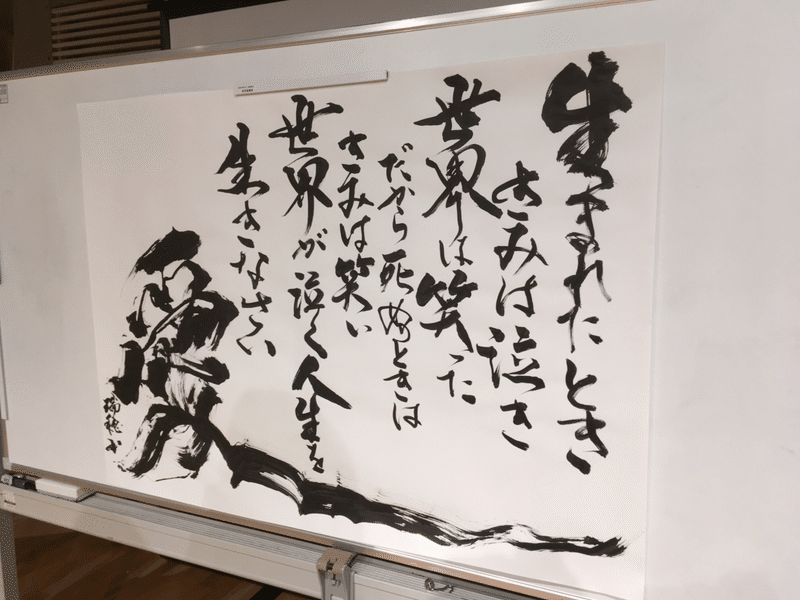 生まれたとき
きみは泣き
世界は笑った
だから死ぬときは
きみは笑い
世界が泣く人生を
生きなさい
愛